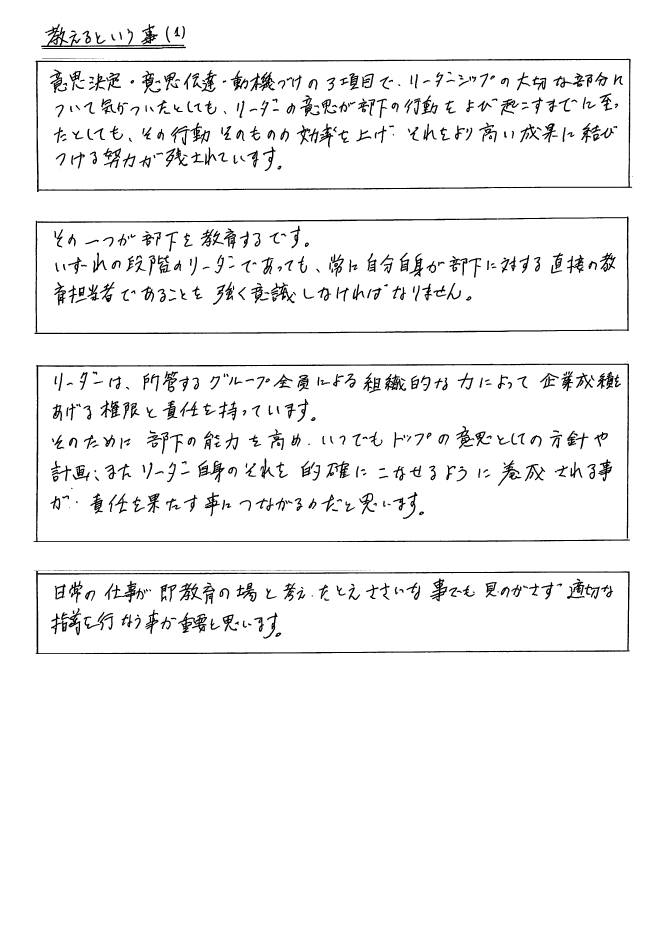 教えるという事(1)
意思決定・意思伝達・動機づけの3項目で、リーダーシップの大切な部分に
ついて気がついたとしても、リーダーの意思が部下の行動をよび起こすまでに至っ
たとしても、その行動そのものの効率を上げ、それをより高い成果に結び
つける努力が残されています。
その一つが部下を教育するです。
いずれの段階のリーダーであっても、常に自分自身が部下に対する直接の教
育担当者であることを強く意識しなければなりません。
リーダーは、所管するグループ全員による組織的な力によって企業成績を
あげる権限と責任を持っています。
そのために部下の能力を高め、いつでもトップの意思としての方針や
計画、またリーダー自身のそれを的確にこなせるように養成される事
が、責任を果たす事につながるのだと思います。
日常の仕事が即教育の場と考え、たとえささいな事でも見のがさず適切な
指導を行なう事が重要と思います。